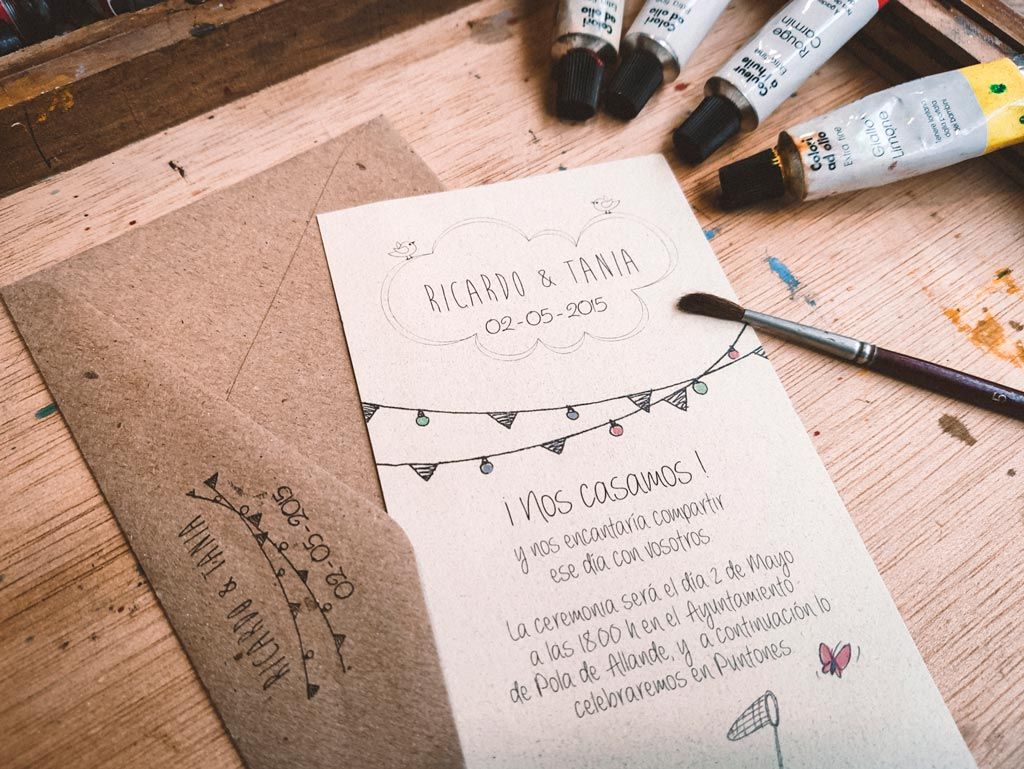 Colori
ad olio
Colori
ad olio
Couleur
à l'huile
Extra fine
Rouge
Carmin
Colori
ad olio
Extra fine
Giallo
Limone
RICARDO & TANIA
02-05-2015
¡ Nos casamos !
y nos encantaría compartir
ese día con vosotros.
La ceremonia será el día 2 de Mayo
a las 18:00 h en el Ayuntamiento
de Pola de Allande, y a continuación lo
celebraremos en Puntones.
RICARDO & TANIA
02-05-2015
5